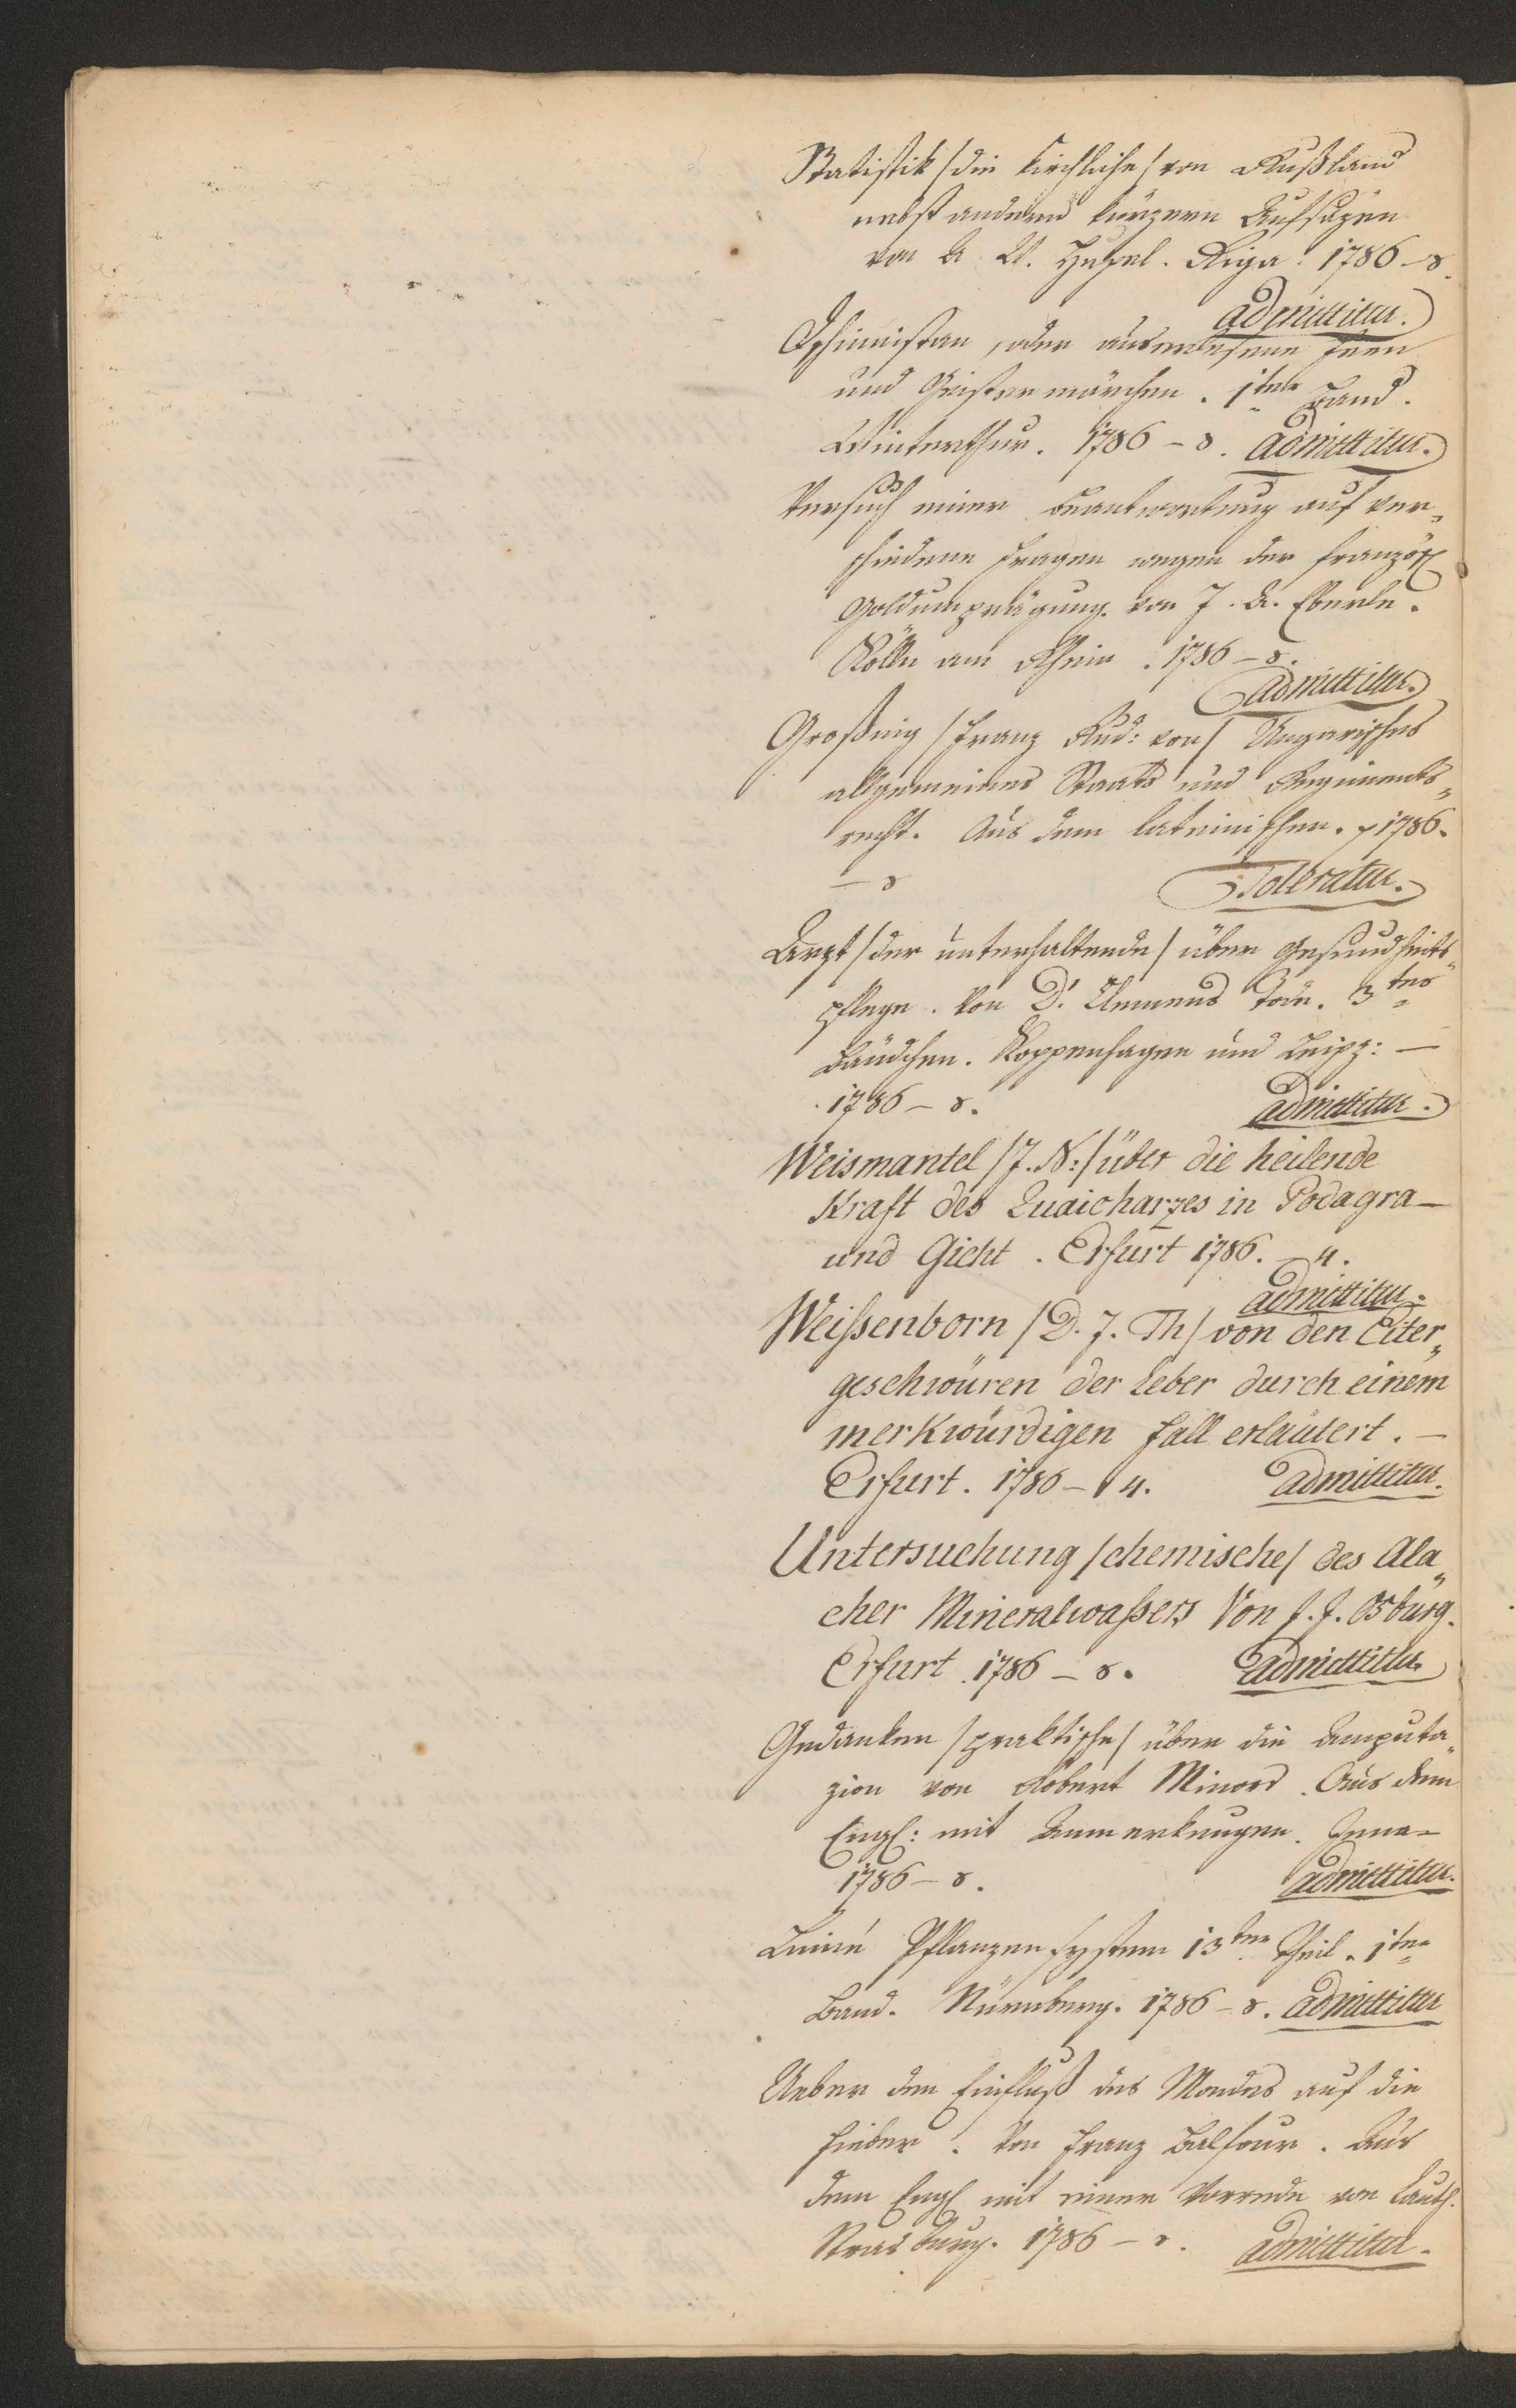 Statistik /die kirchliche/ von Rußland
nebst andern kürzern Aufsäzen
von A. W. Hupel. Riga. 1786 – 8.
admittitur.
Dschinnistan, oder auserlesene Feen
und Geistermärchen. 1ter Band.
Winterthur. 1786 – 8. admittitur.
Versuch einer Beantwortung auf ver„
schiedene Fragen wegen der französ
Goldumprägung. von J. A. Eberle.
Kölln am Rhein. 1786 – 8.
admittitur.
Großing /Franz Rud: von/ Ungarisches
allgemeines Staats und Regiments„
recht. Aus dem lateinischen. 1786.
– 8 Toleratur.
Arzt /der unterhaltende/ über Gesundheits„
pflege. Von D. Clemens Tode. 3tes
Bändchen. Koppenhagen und Leipz: –
1786 – 8. admittitur.
Weismantel /J. N:/ über die heilende
Kraft des Quaicharzes in Podagra –
und Gicht. Erfurt 1786. – 4.
admittitur.
Weißenborn /D. J. Th/ von den Eiter„
geschwüren der Leber durch einem
merkwürdigen Fall erläutert. –
Erfurt. 1786 – 4. admittitur.
Untersuchung /chemische/ des Ala„
cher Mineralwaßers Von J. J. Osburg.
Erfurt. 1786 – 8. admittitur
Gedanken /praktische/ über die Amputa„
zion von Robert Minors. Aus dem
Engl: mit Anmerkungen. Jena –
1786 – 8. admittitur.
Linné Pflanzensystem 13ter Theil. 1ter
Band. Nürnberg. 1786 – 8. admittitur
Ueber den Einfluß des Mondes auf die
Fieber. Von Franz Balfour. Aus
dem Engl mit einer Vorrede von Lauth.
Strasburg. 1786 – 8. admittitur.